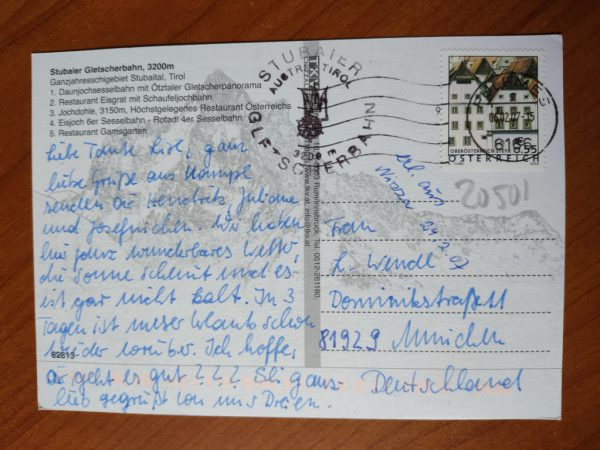 Stubaier Gletscherbahn, 3200m
Ganzjahresschigebiet Stubaital, Tirol
1. Daunjochsesselbahn mit Ötztaler Gletscherpanorama
2. Restaurant Eisgrat mit Schaufeljochbahn
3. Jochdohle, 3150m, Höchstgelegenes Restaurant Österreichs
4. Eisjoch 6er Sesselbahn - Rotadl 4er Sesselbahn
5. Restaurant Gamsgarten
Liebe Tante Lisl, ganz
liebe Grüße aus
senden dir Hendrik, Juliane
und Josefinchen. Wir haben
hier ganz wunderbares Wetter,
die Sonne scheint und es
ist gar nicht kalt. In 3
Tagen ist unser Urlaub schon
wieder vorüber. Ich hoffe,
dir geht es gut ? ? ? Sei ganz
lieb gegrüßt von uns Dreien.
82813
STUBAIER
AUSTRIA TIROL
GLETSCHERBAHN
Rum/Innsbruck, Tel. 0512-261180,
info@tkv.at
6166
0.55
OBERÖSTERREICH
ÖSTERREICH
20501
aus
24.2.07
Frau
L. Wendl
Dominikstraße 11
81929 München
Deutschland